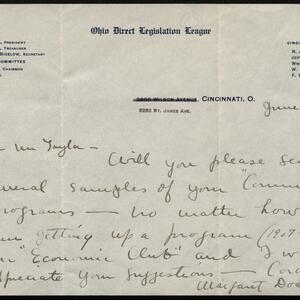 Ohio Direct Legislation League
, PRESIDENT
, TREASURER
BIGELOW, SECRETARY
COMMITTEE
CHAIRMAN
CINC
R. J
JEF
WM
W.
F. E
5600 WILSON AVENUE, CINCINNATI, O.
2222 ST. JAMES AVE.
June
Mr Taylor –
Will you please se
several samples of your "Comm
programs – no matter how
getting up a program (1909-
"Economic Club" and I w
appreciate your suggestions – Cord
Margaret Doa